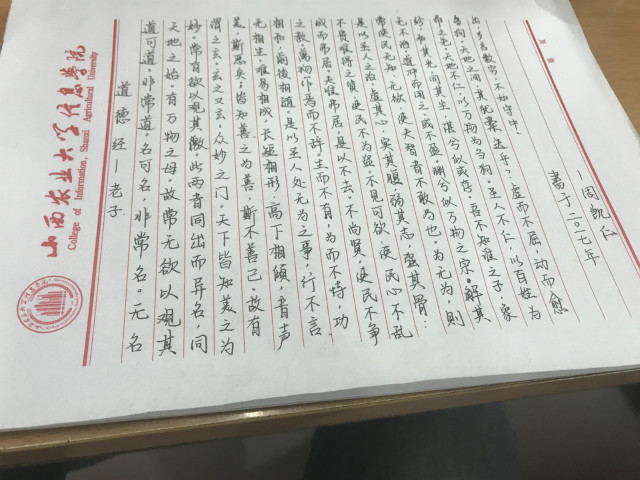 山西农业大学信息学院
College of Information, Shanxi Agricultural University
道德经—老子
道可道,非常道。名可名,非常名。无名
天地之始,有万物之母。故常无欲以观其
妙,常有欲以观其徼。此两者同出而异名,同
谓之玄,玄之又玄,众妙之门。天下皆知美之为
美,斯恶矣;皆知善之为善,斯不善已。故有
无相生,难易相成,长短相形,高下相倾,音声
相和,前後相随。是以圣人处无为之事,行不言
之教,万物作焉而不辞,生而不有,为而不恃,功
成而弗居。夫唯弗居,是以不去。不尚贤,使民不争
不贵难得之货,使民不为盗,不见可欲,使民心不乱
是以圣人之治,虚其心,实其腹,弱其志,强其骨:
常使民无知、无欲,使夫智者不敢为也。为无为,则
无不治。道冲而用之或不盈。渊兮似万物之宗。解其
纷,和其光,同其尘,湛兮似或存。吾不知谁之子,象
帝之先。天地不仁,以万物为刍狗。圣人不仁,以百姓为
刍狗。天地之间,其犹橐龠乎?虚而不屈,动而愈
出。多言数穷,不如守中。
—周凯仁
書于二〇一七年